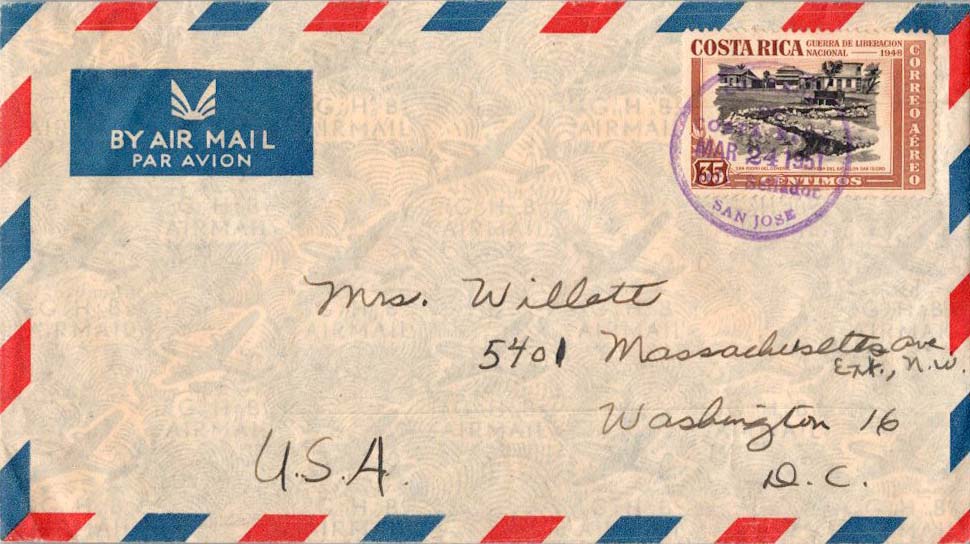 BY AIR MAIL
PAR AVION
COSTA RICA GUERRA DE LIBERACION
NACIONAL 1948
CORREO AÉREO
MAR 24 1951
SAN JOSE
35 CENTIMOS
Mrs. Willett
5401 Massachusetts Ave
Ext., N.W.
Washington 16
D.C.
U.S.A.
G-H-B
AIRMAIL